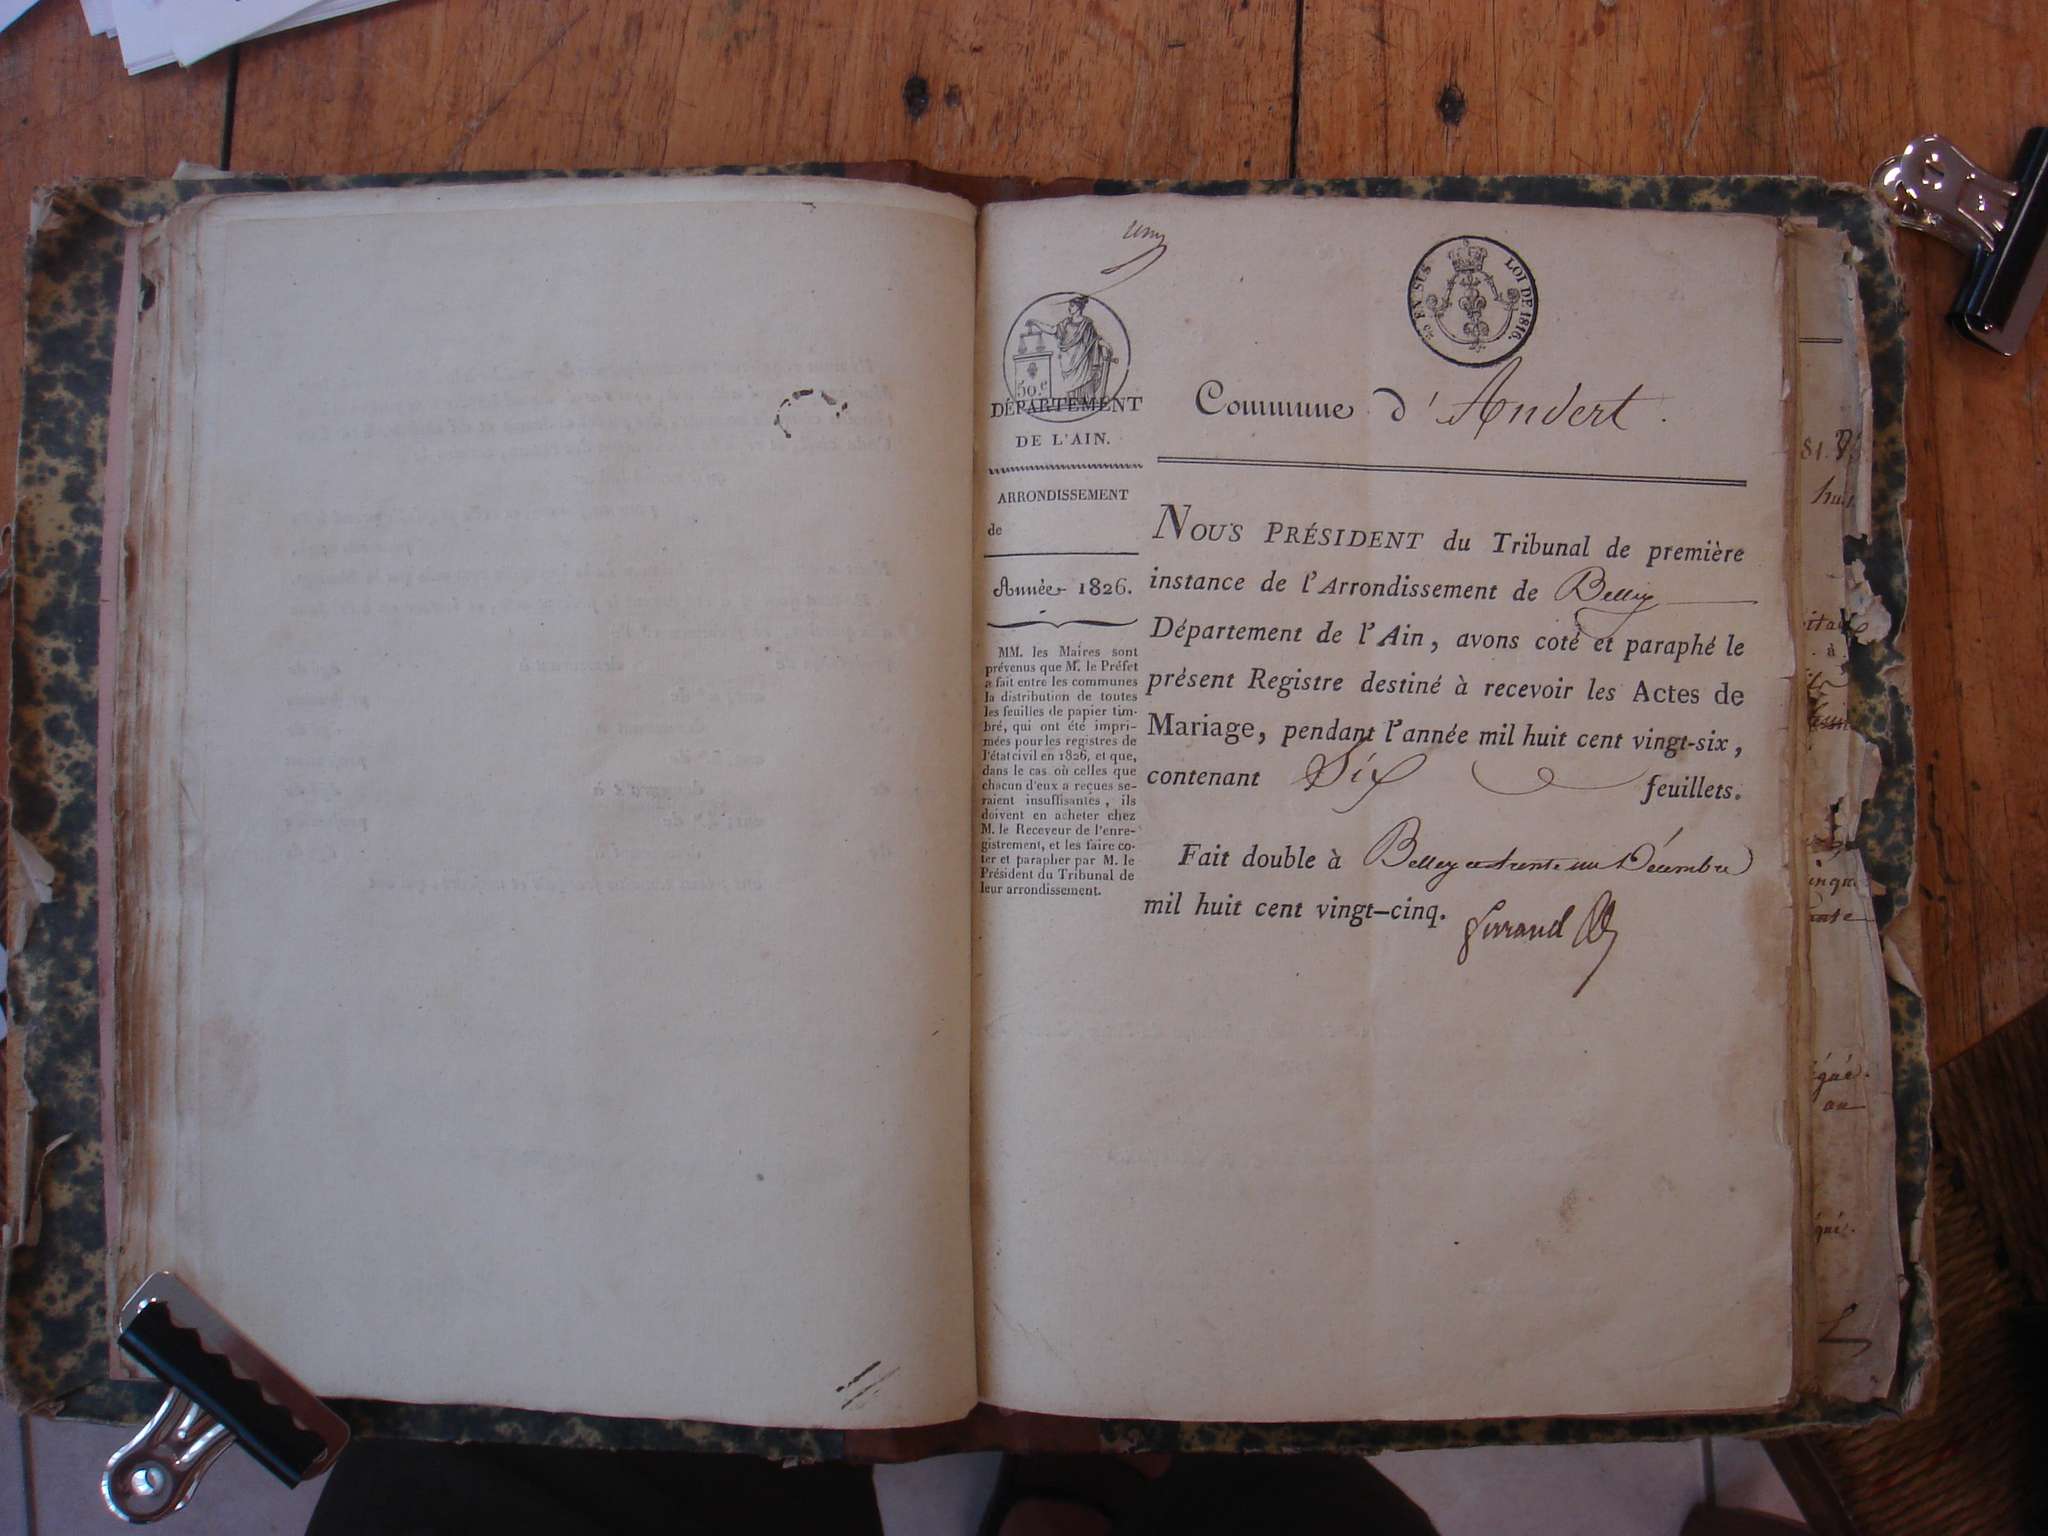 5 EN SUS LOI DE 1816.
50.c
DÉPARTEMENT
DE L'AIN.
Commune d'Andert.
ARRONDISSEMENT
de
Année 1826.
MM. les Maires sont
prévenus que M. le Préfet
a fait entre les communes
la distribution de toutes
les feuilles de papier tim-
bré, qui ont été impri-
mées pour les registres de
l'état civil en 1826, et que,
dans le cas où celles que
chacun d'eux a reçues se-
raient insuffisantes, ils
doivent en acheter chez
M. le Receveur de l'enre-
gistrement, et les faire co-
ter et parapher par M. le
Président du Tribunal de
leur arrondissement.
NOUS PRÉSIDENT du Tribunal de première
instance de l'Arrondissement de Belley
Département de l'Ain, avons coté et paraphé le
présent Registre destiné à recevoir les Actes de
Mariage, pendant l'année mil huit cent vingt-six,
contenant Six feuillets.
Fait double à Belley ce trente un Décembre
mil huit cent vingt-cinq.
81.
à
au